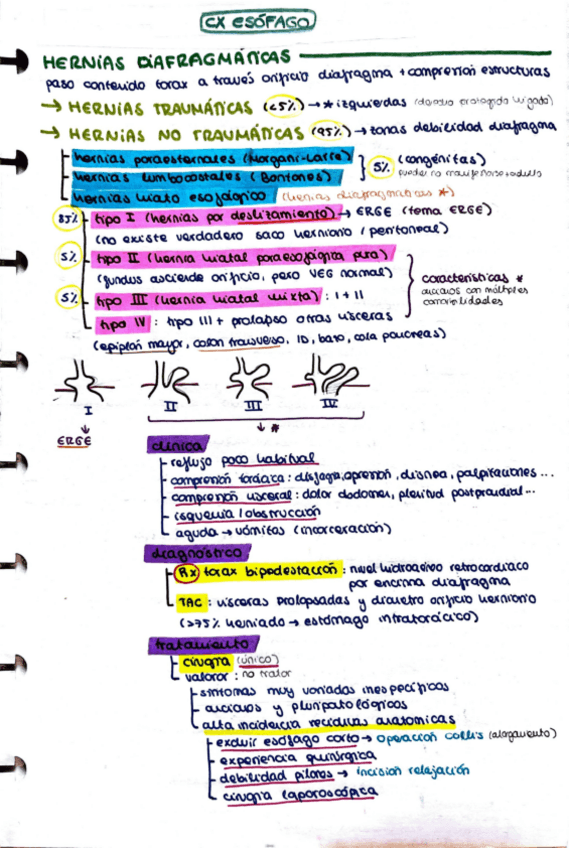 CX ESÓFAGO
HERNIAS DIAFRAGMÁTICAS
paso contenido torax a través orificio diafragma + compresión estructuras
→ HERNIAS TRAUMÁTICAS (<5%) → * izquierdas (derecha protegida hígado)
→ HERNIAS NO TRAUMÁTICAS (95%) → zonas debilidad diafragma
hernias paraesternales (Morgani-Larre)
hernias lumbocostales (Bontones)
5% (congénitas)
hernias hiato esofágico (hernias diafragmáticas *)
85% tipo I (hernias por deslizamiento) → ERGE (tema ERGE)
(no existe verdadero saco herniario / peritoneal)
5% tipo II (hernia hiatal paraesofágica pura)
(fundus asciende orificio, pero UEG normal)
5% tipo III (hernia hiatal mixta) : I + II
tipo IV : tipo III + prolapso otras vísceras
(epiplon mayor, colon transverso, ID, bazo, cola páncreas)
características *
ancianos con múltiples
comorbilidades
I II III IV
↓ ↓ *
ERGE
clínica
reflujo poco habitual
compresión torácica : disfagia, opresión, disnea, palpitaciones ...
compresión visceral : dolor abdomen, plenitud postprandial ...
isquemia / obstrucción
aguda → vómitos (incarceración)
diagnóstico
Rx torax bipedestación : nivel hidroaéreo retrocardiaco
por encima diafragma
TAC : vísceras prolapsadas y diámetro orificio herniario
(>75% herniado → estómago intratorácico)
tratamiento
cirugía (único)
valorar : no tratar
síntomas muy variados inespecíficos
ancianos y pluripatológicos
alta incidencia recidivas anatómicas
excluir esófago corto → operación collis (alargamiento)
experiencia quirúrgica
debilidad pilares → incisión relajación
cirugía laparoscópica